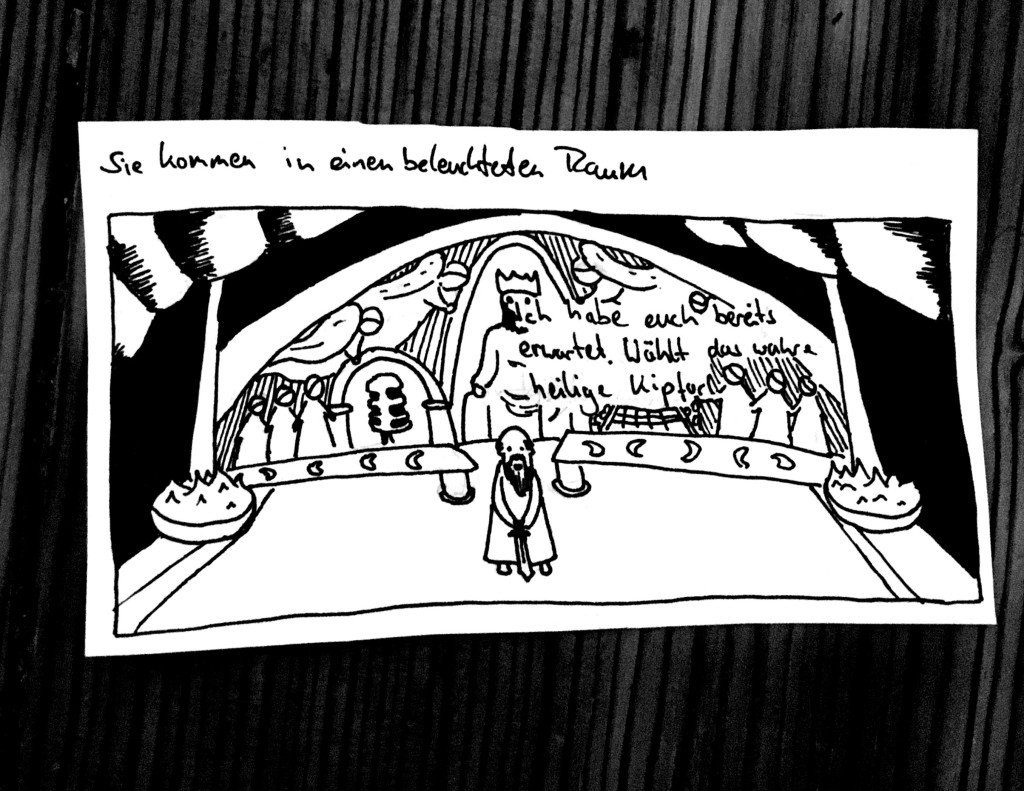 Sie kommen in einen beleuchteten Raum
Ich habe euch bereits
erwartet. Wählt das wahre
heilige Kipferl